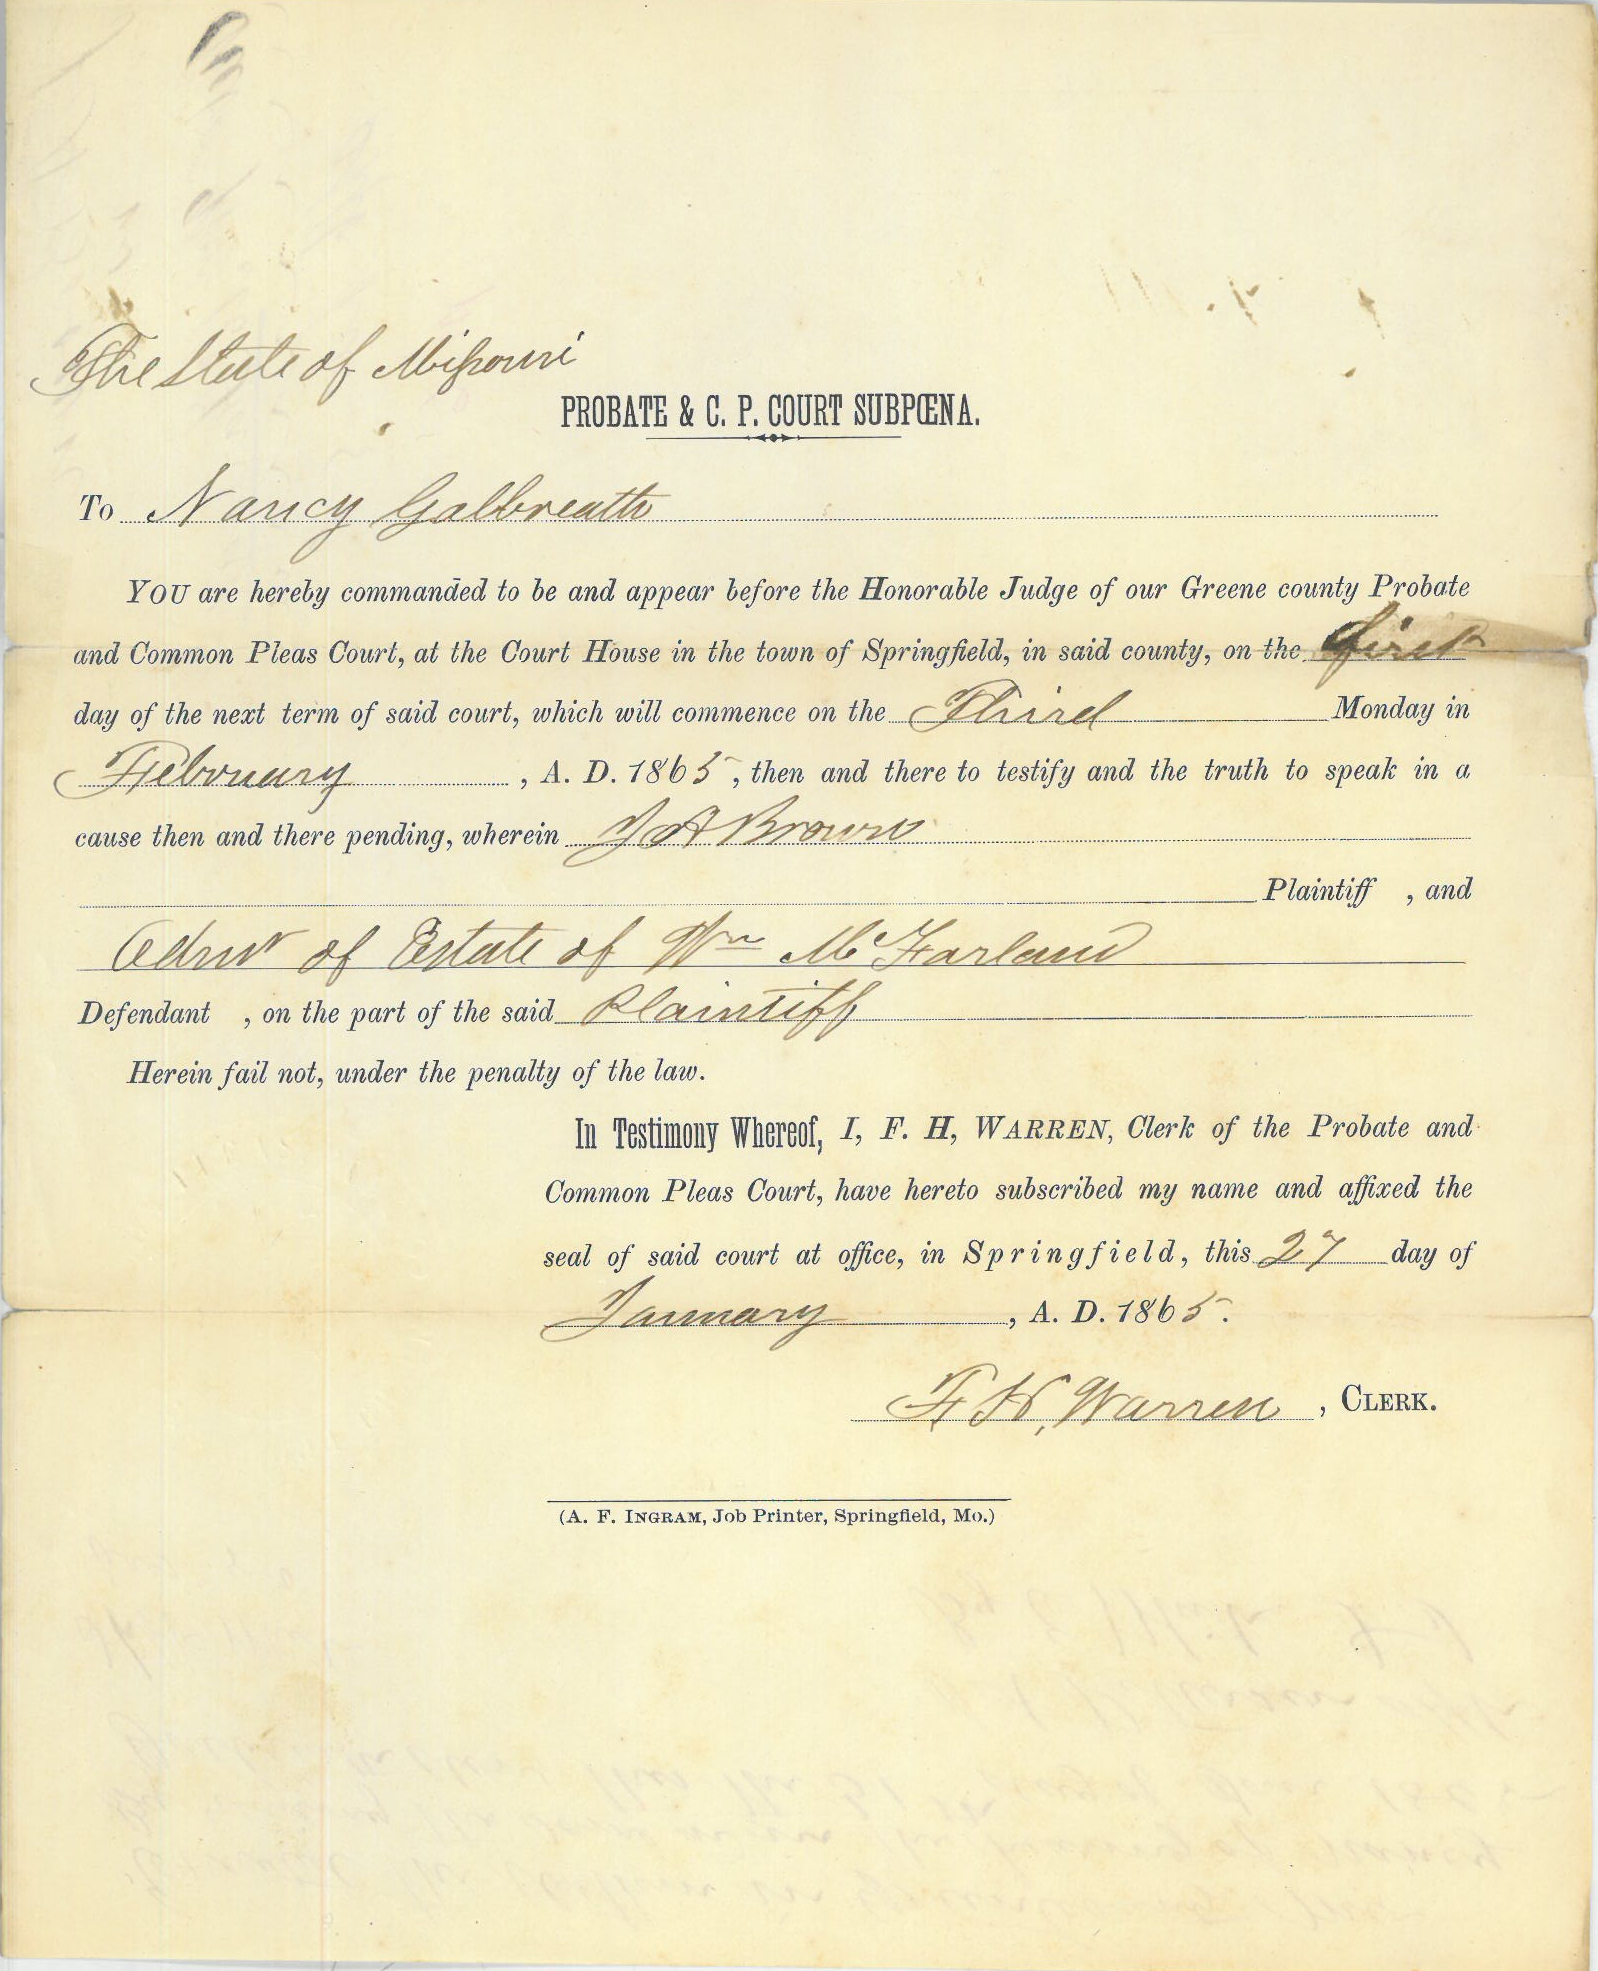 The State of Missouri
PROBATE & C. P. COURT SUBPŒNA.
To Nancy Galbreath
YOU are hereby commanded to be and appear before the Honorable Judge of our Greene county Probate
and Common Pleas Court, at the Court House in the town of Springfield, in said county, on the first
day of the next term of said court, which will commence on the Third Monday in
February , A. D. 1865, then and there to testify and the truth to speak in a
cause then and there pending, wherein J A Brown
Plaintiff , and
Admr of Estate of Wm McFarland
Defendant , on the part of the said Plaintiff
Herein fail not, under the penalty of the law.
In Testimony Whereof, I, F. H, WARREN, Clerk of the Probate and
Common Pleas Court, have hereto subscribed my name and affixed the
seal of said court at office, in Springfield, this 27 day of
January , A. D. 1865.
F H, Warren , CLERK.
(A. F. INGRAM, Job Printer, Springfield, Mo.)